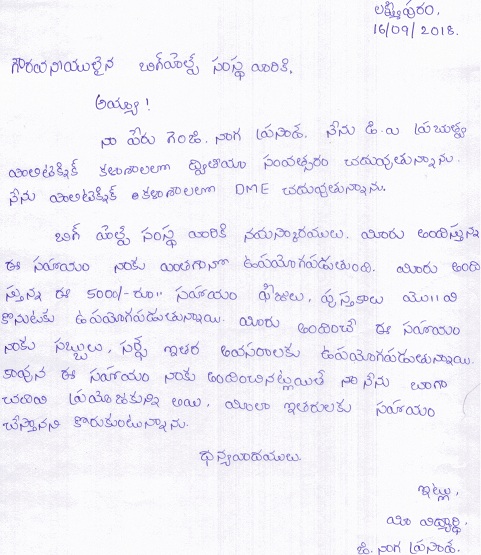 లక్ష్మీపురం,
16/09/2018.
గౌరవనీయులైన బిగ్‌హెల్ప్ సంస్థ వారికి,
అయ్యా!
నా పేరు గెంజి. నాగ ప్రసాద్. నేను డి.ఎ ప్రభుత్వ
పాలిటెక్నిక్ కళాశాలలో ద్వితీయ సంవత్సరం చదువుతున్నాను.
నేను పాలిటెక్నిక్ కళాశాలలో DME చదువుతున్నాను.
బిగ్ హెల్ప్ సంస్థ వారికి నమస్కారములు. మీరు అందిస్తున్న
ఈ సహాయం నాకు ఎంతగానో ఉపయోగపడుతుంది. మీరు అంది
స్తున్న ఈ 5000/- రూ॥ సహాయం ఫీజులు, పుస్తకాలు మొ॥వి
కొనుటకు ఉపయోగపడుతున్నాయి. మీరు అందించే ఈ సహాయం
నాకు సబ్బులు, సర్ఫ్ ఇతర అవసరాలకు ఉపయోగపడుతున్నాయి.
కావున ఈ సహాయం నాకు అందించినట్లుయితే నా నేను బాగా
చదివి ప్రయోజకున్ని అయి, మీలా ఇతరులకు సహాయం
చేస్తానని కోరుకుంటున్నాను.
ధన్యవాదములు.
ఇట్లు,
మీ విద్యార్థి,
జి. నాగ ప్రసాద్.